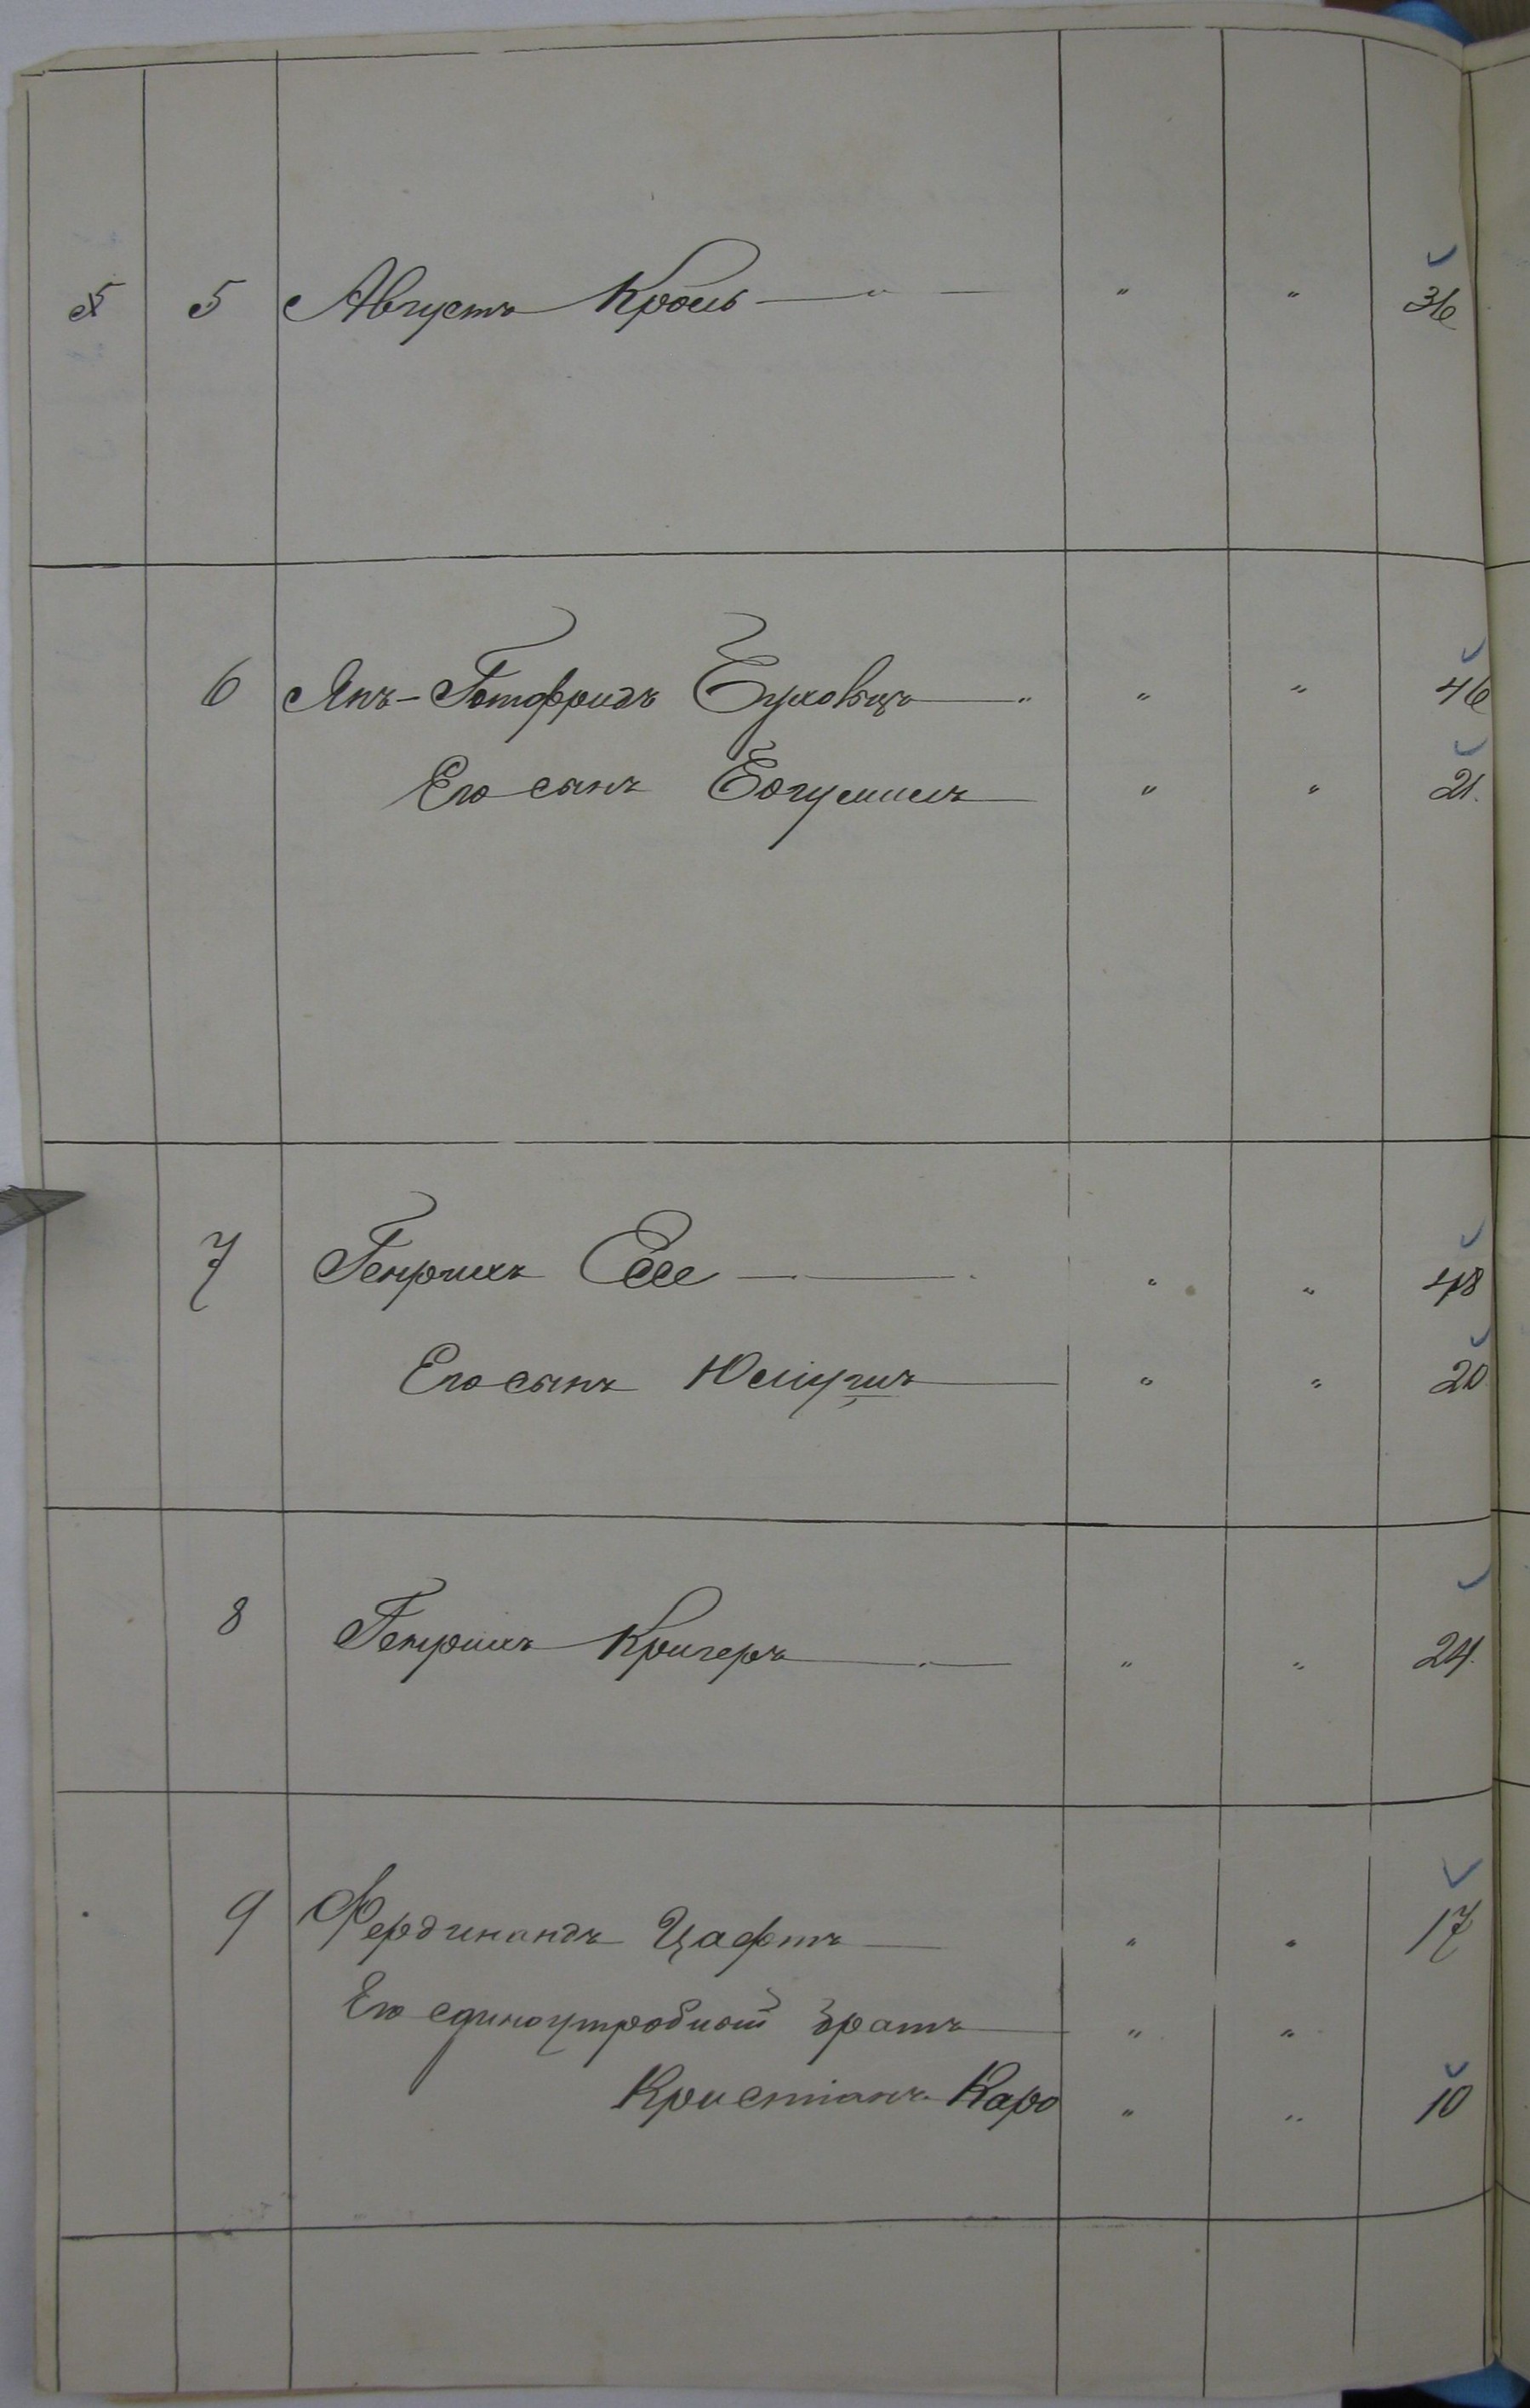 5 5 Августъ Кроль — " — " " 36
6 Янъ-Готфридъ Буховецъ — " " " 46
Его сынъ Богумилъ — " " 21.
7 Генрихъ Ессе — " " 48
Его сынъ — " " 20
8 Генрихъ Кригеръ — " " 24.
9 Фердинандъ Цафтъ — " " 17
Его единоутробный братъ — " "
Кристіанъ Каро " " 10